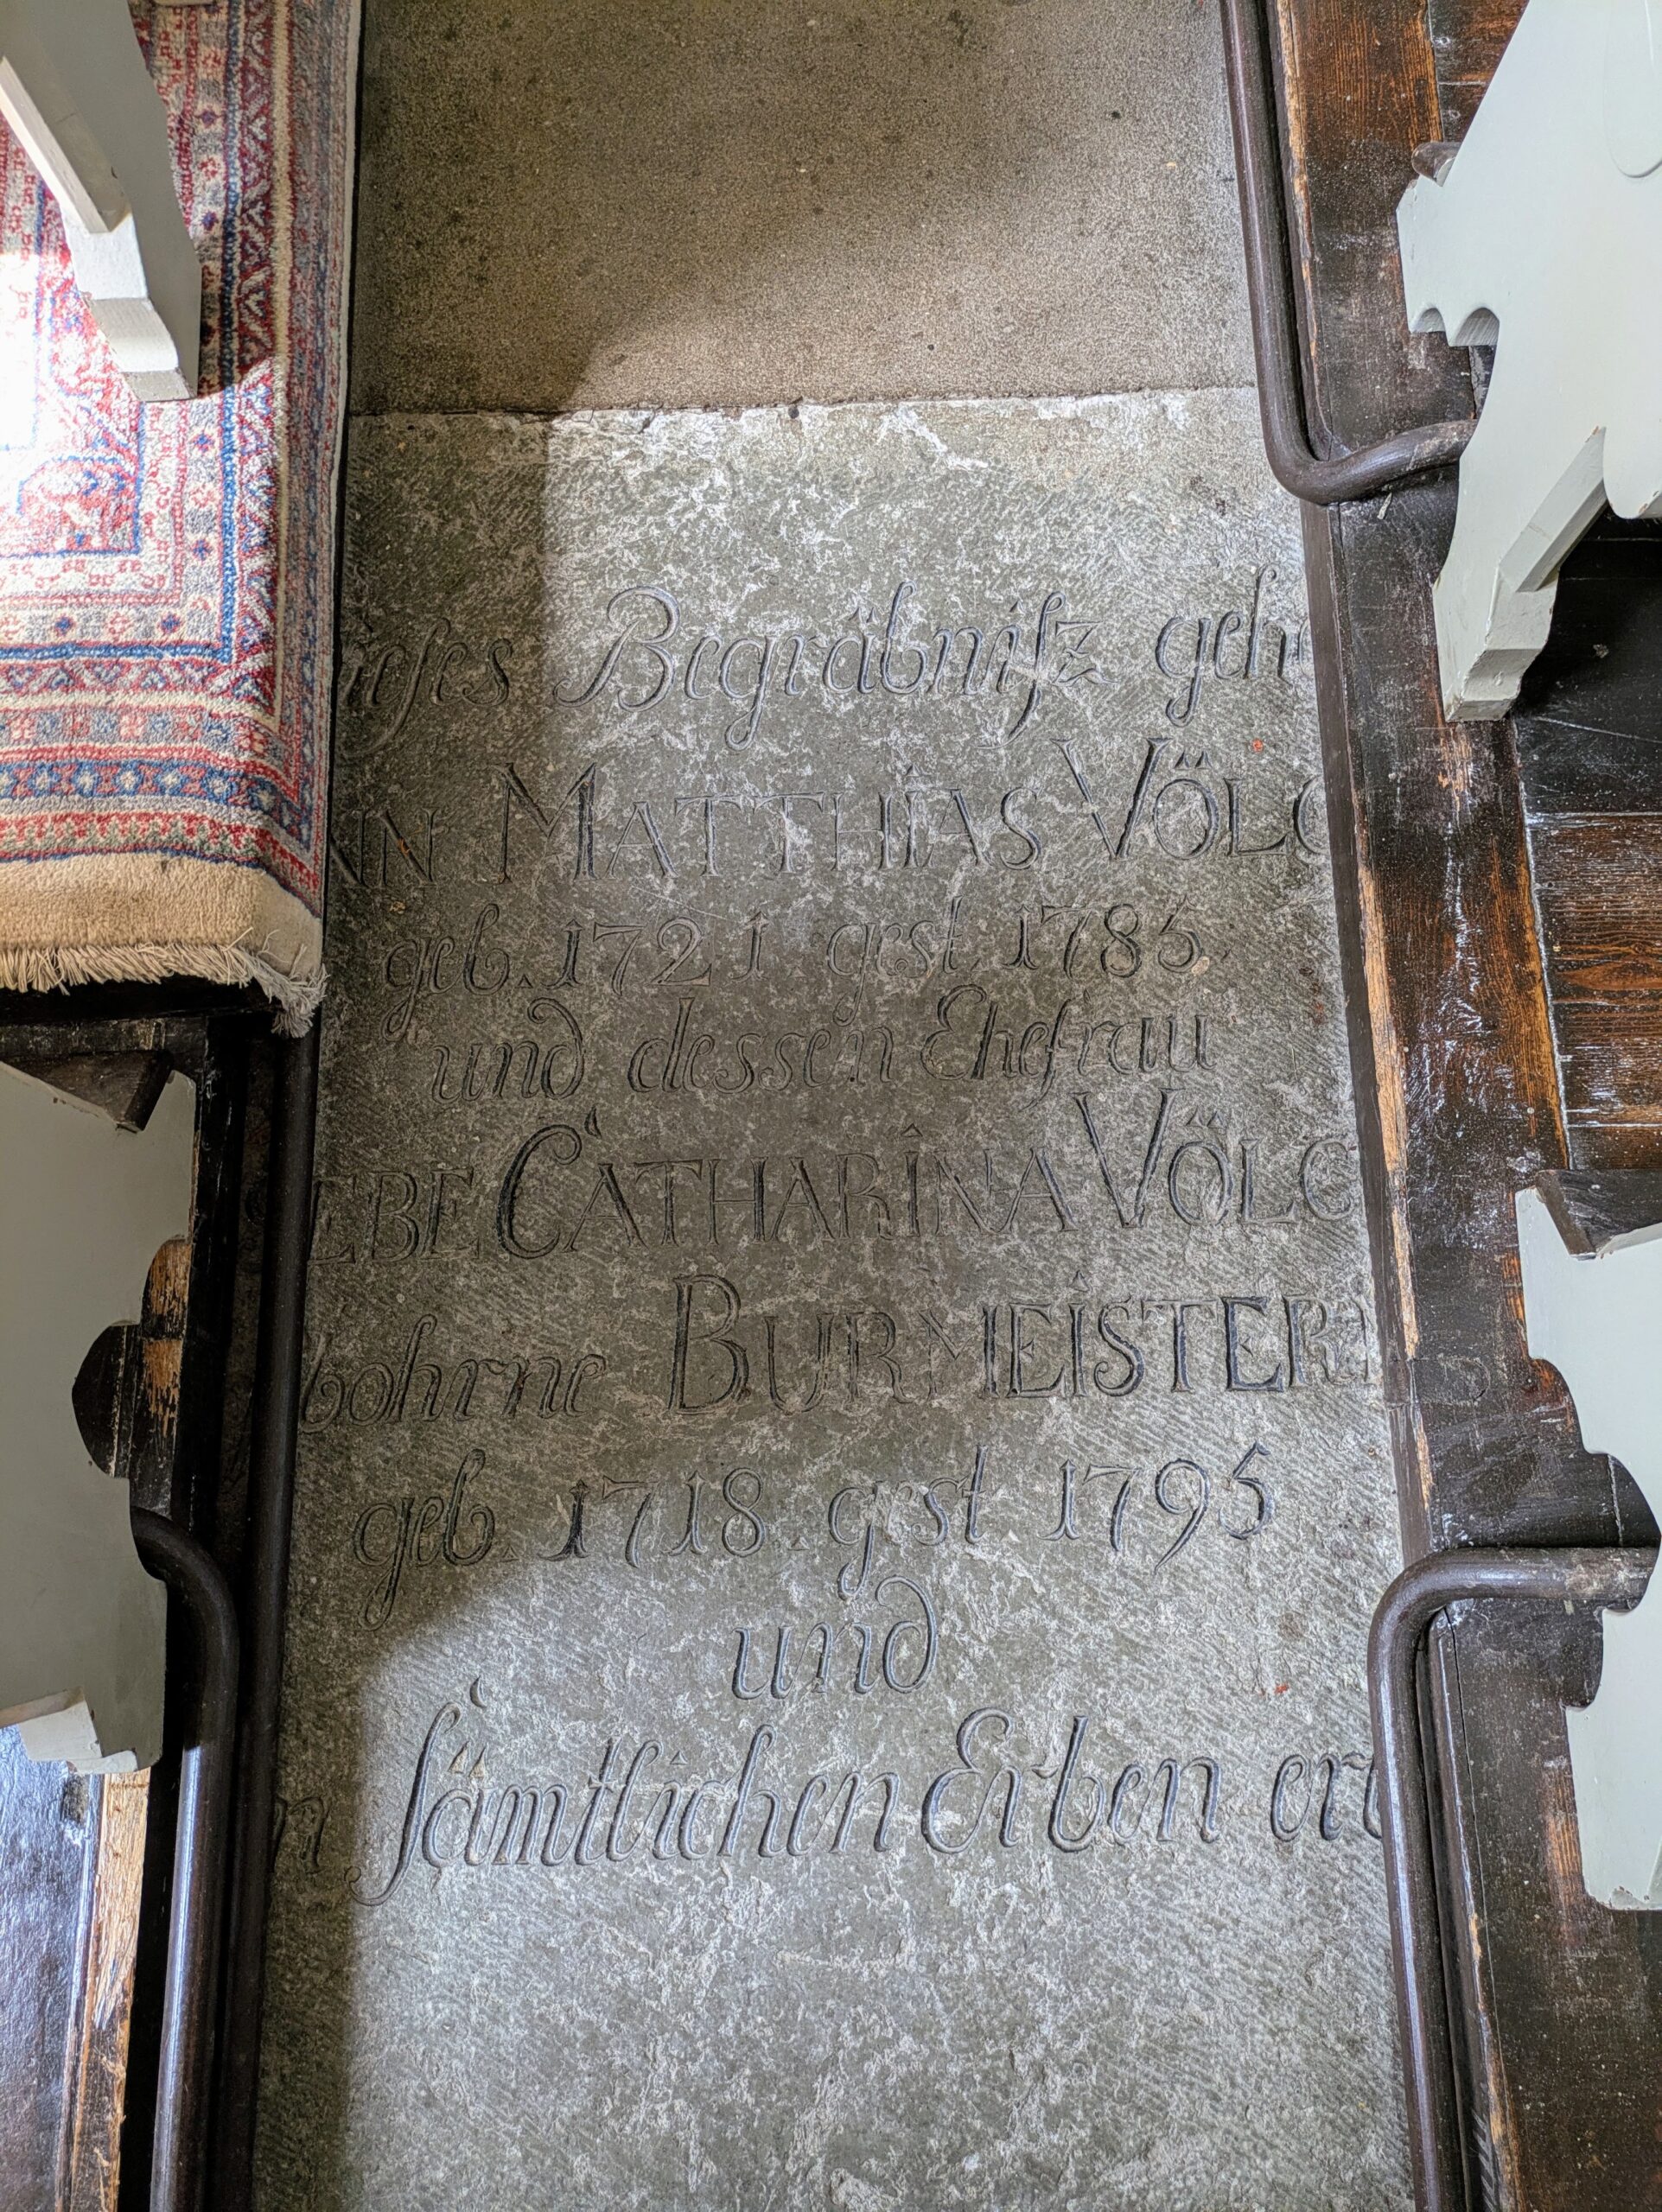 ieses Begräbnisz geh
NN MATTHIAS VÖLC
geb. 1721. gest 1785.
und dessen Ehefrau
EBE CATHARINA VÖLC
bohrne BURMEISTERN
geb. 1718. gest 1795
und
n sämtlichen Erben